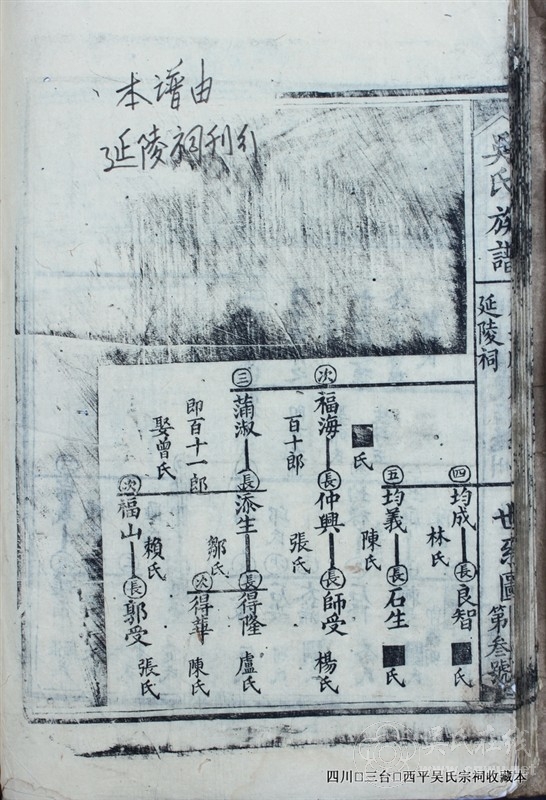 本譜由
延陵祠刊引
吳氏族譜
延陵祠
世系圖第叁號
四 均成 長 良智
林氏
■氏
五 均義 長 石生
陳氏
■氏
■氏
次 福海 長 仲興 長 師受
百十郎
張氏
楊氏
三 蒲淑 長 添生 長 得隆
即百十一郎
鄒氏
盧氏
次 得華
陳氏
娶曾氏
次 福山 長 郭受
賴氏
張氏
吴氏在线
四川□三台□西平吴氏宗祠收藏本